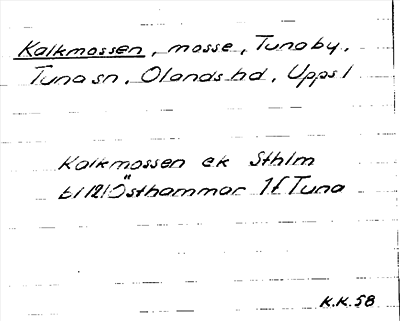 Kalkmossen, mosse, Tunaby,
Tuna sn, Olands hd, Upps l
Kalkmossen ek Sthlm
bl 121 Östhammar 1f Tuna
K.K. 58